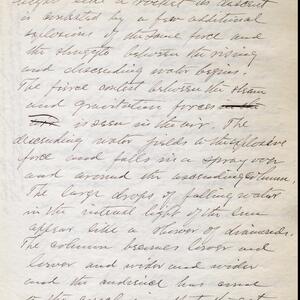 like a rocket its ascent
is assisted by a few additional
explosions of the same force and
the struggle between the rising
and descending water begins.
The fierce contest between the steam
and gravitation forces
is seen in the air. The
descending water yields to the explosive
force and falls in a spray over
and around the ascending column.
The large drops of falling water
in the interval light of the sun
appear like a shower of diamonds.
The column becomes lower and
lower and wider and wider
and the audience has come
to the